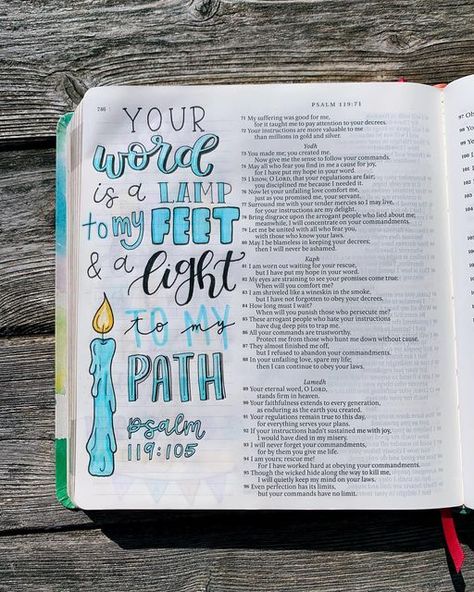 786
PSALM 119:71
YOUR
word
is a LAMP
to my FEET
& a light
TO MY
PATH
psalm
119:105
71 My suffering was good for me,
for it taught me to pay attention to your decrees.
72 Your instructions are more valuable to me
than millions in gold and silver.
Yodh
73 You made me; you created me.
Now give me the sense to follow your commands.
74 May all who fear you find in me a cause for joy,
for I have put my hope in your word.
75 I know, O LORD, that your regulations are fair;
you disciplined me because I needed it.
76 Now let your unfailing love comfort me,
just as you promised me, your servant.
77 Surround me with your tender mercies so I may live,
for your instructions are my delight.
78 Bring disgrace upon the arrogant people who lied about me;
meanwhile, I will concentrate on your commandments.
79 Let me be united with all who fear you,
with those who know your laws.
80 May I be blameless in keeping your decrees;
then I will never be ashamed.
Kaph
81 I am worn out waiting for your rescue,
but I have put my hope in your word.
82 My eyes are straining to see your promises come true.
When will you comfort me?
83 I am shriveled like a wineskin in the smoke,
but I have not forgotten to obey your decrees.
84 How long must I wait?
When will you punish those who persecute me?
85 These arrogant people who hate your instructions
have dug deep pits to trap me.
86 All your commands are trustworthy.
Protect me from those who hunt me down without cause.
87 They almost finished me off,
but I refused to abandon your commandments.
88 In your unfailing love, spare my life;
then I can continue to obey your laws.
Lamedh
89 Your eternal word, O LORD,
stands firm in heaven.
90 Your faithfulness extends to every generation,
as enduring as the earth you created.
91 Your regulations remain true to this day,
for everything serves your plans.
92 If your instructions hadn't sustained me with joy,
I would have died in my misery.
93 I will never forget your commandments,
for by them you give me life.
94 I am yours; rescue me!
For I have worked hard at obeying your commandments.
95 Though the wicked hide along the way to kill me,
I will quietly keep my mind on your laws.
96 Even perfection has its limits,
but your commands have no limit.